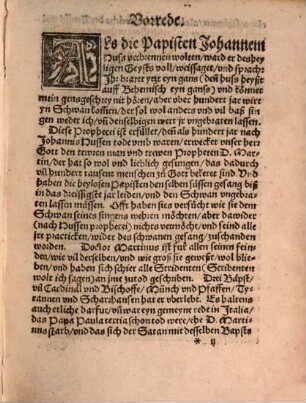 Vorrede.
Als die Papisten Johannem
Huss verbrennen wolten/ ward er des hey-
ligen Geysts voll/ weissaget/ vnd sprach:
Jh: bratet ytzt eyn gans (den huss heyßt
auff Behemisch eyn ganss) vnd könnet
mein gensgeschrey nit hören/ aber vber hundert jar wirt
eyn Schwan kommen/ der sol wol anders vnd vil bass sin-
gen weder ich/ vñ den selbigen wert jr vngebraten lassen.
Diese Prophecei ist erfüllet/ deñ als hundert jar nach
Johannis Hussen tode vmb waren/ erwecket vnser herr
Gott den tewren man vnd rewen Propheten D. Mar-
tin/ der hat so wol vnd lieblich gesungen/ das dadurch
vil hundert tausent menschen zů Gott bekeret sind. Vnd
haben die heylosen Papisten den selben süssen gesang biss
in das dreissigste jar leiden/ vnd den Schwan vngebra-
ten lassen müssen. Offt haben sies versücht wie sie den
Schwan seines singens wehren möchten/ aber dawider
(nach Hussen prophecei) nichts vermöcht/ vnd seind alle
jre practicken/ wider des schwanen gesang/ zuschanden
worden. Doctor Martinus ist für allen seinen fein-
den/ wie vil derselben/ vnd wie gross sie gewesst/ wol blie-
ben/ vnd haben sich schier alle Stridenten (Scribenten
wolt ich sagen) an jme zutod geschriben. Drei Bäpst/
vil Cardinäl vnd Bischoffe/ Münch vnd Pfaffen/ Ty-
rannen vnd Scharrhansen hat er vberlebt. Es haltens
auch etliche darfur/ vñ war eyn gemeyne rede in Jtalia/
das Papa Paula tertia schon tod were/ ehe D. Marti-
nus starb/ vnd das sich der Satan mit desselben Bapsts
* ij